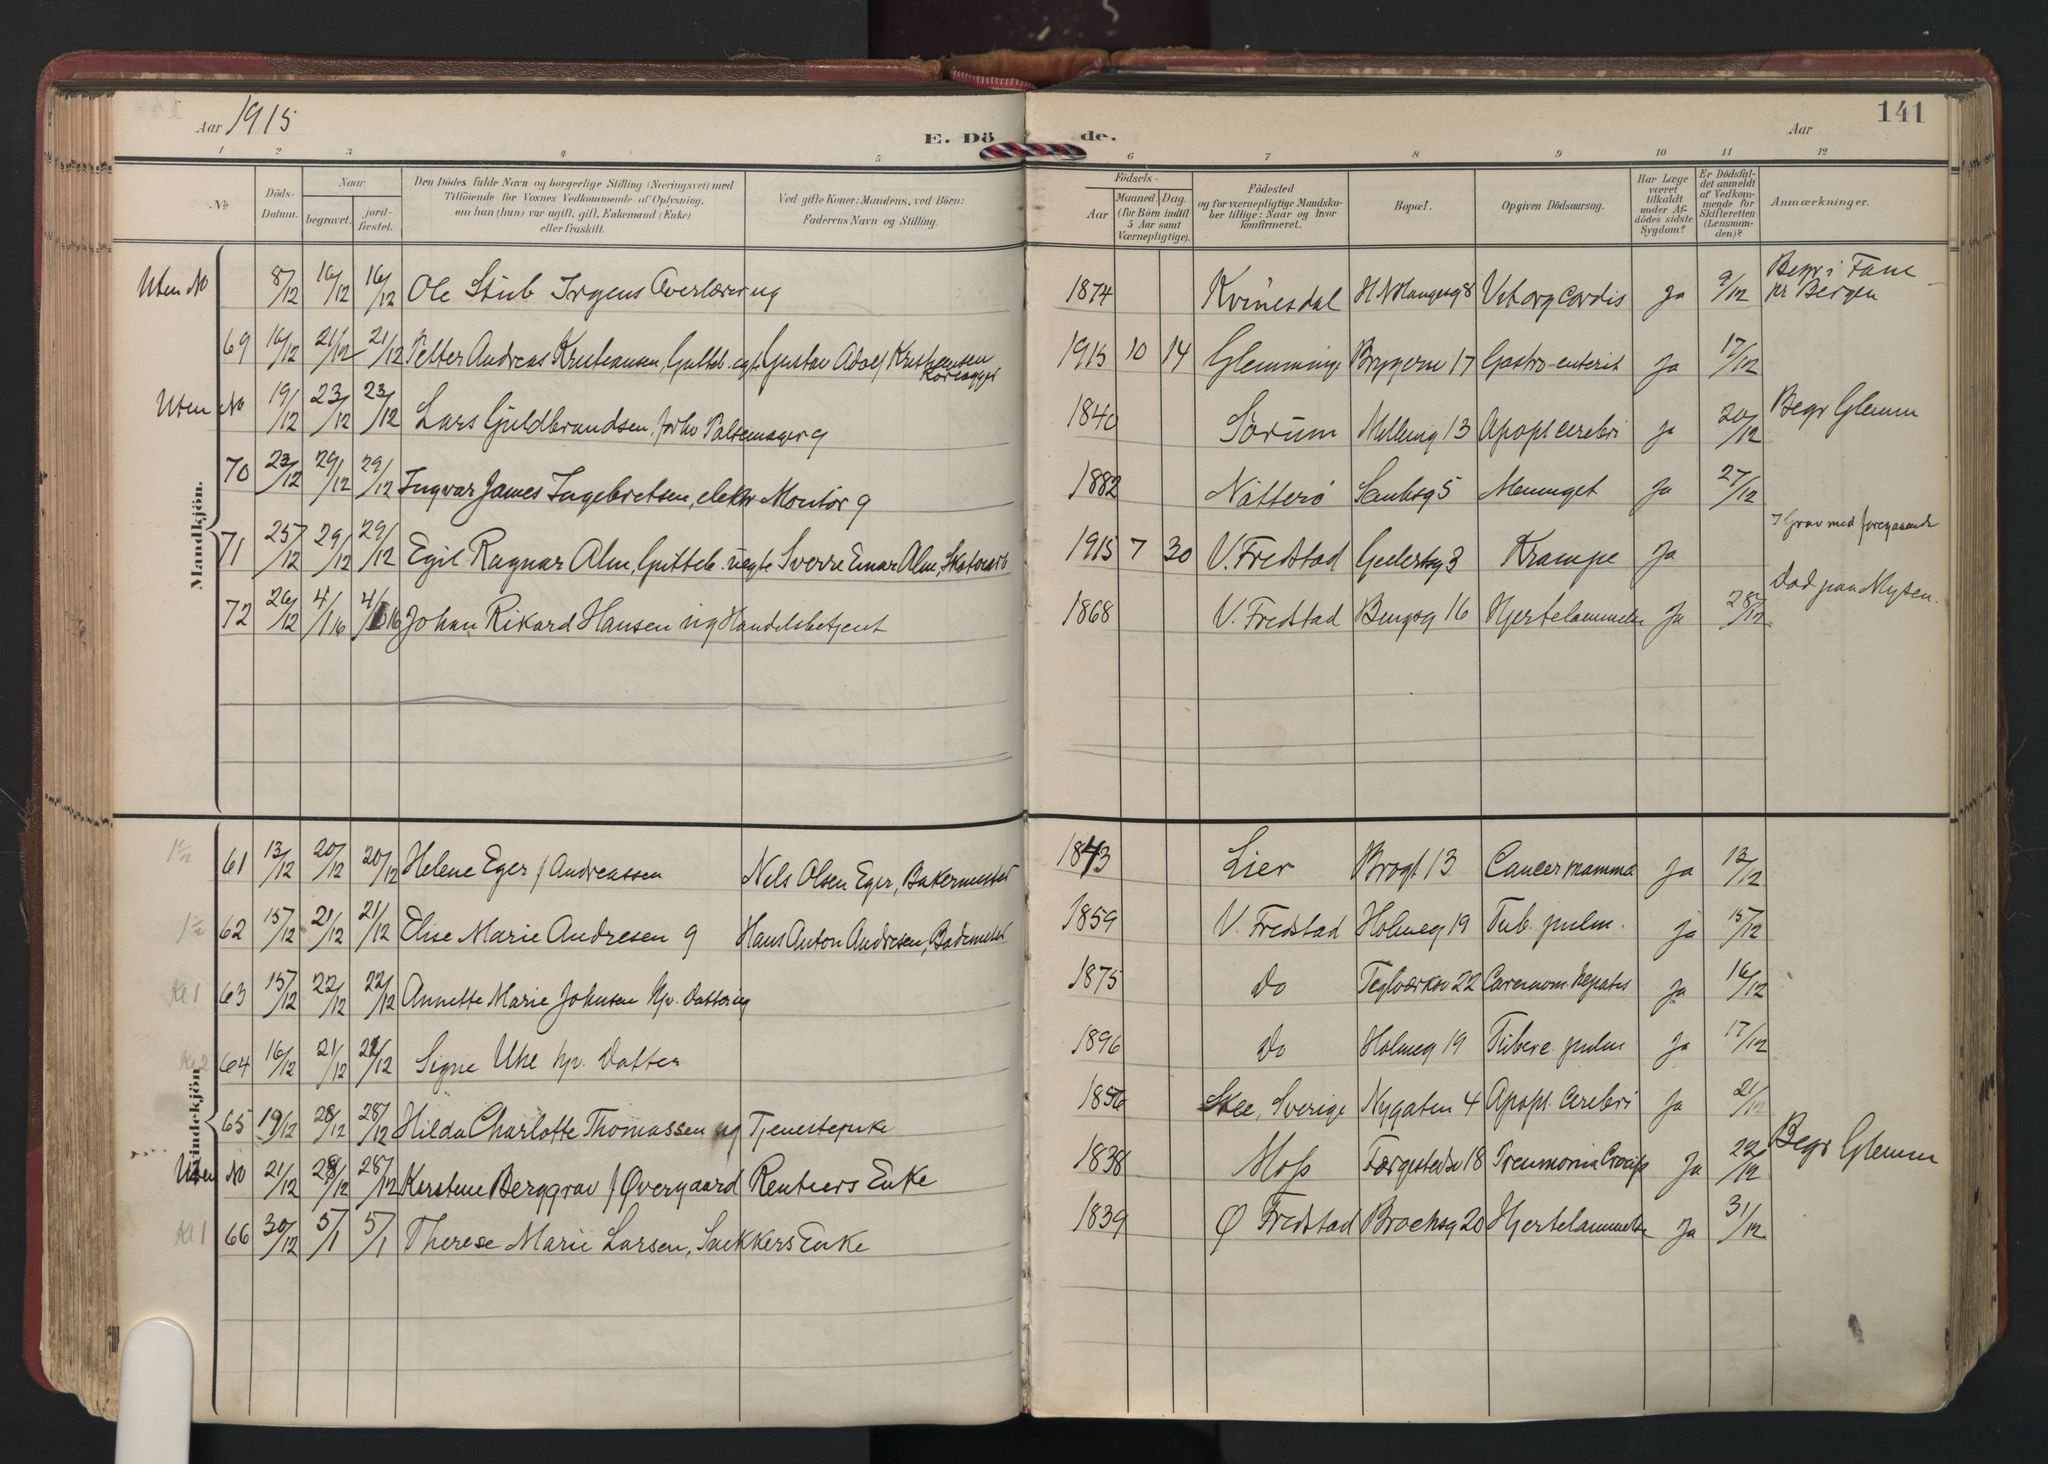 141
Aar 1915
E. Dö de.
Aar
1 2 3 4 5 6 7 8 9 10 11 12
No
Döds-Datum.
Naar
begravet.
jord-fæstet.
Den Dödes fulde Navn og borgerlige Stilling (Næringsvei) med
Tilföiende for Voxnes Vedkommende af Oplysning,
om han (hun) var ugift, gift, Enkemand (Enke)
eller fraskilt.
Ved gifte Koner: Mandens, ved Börn:
Faderens Navn og Stilling.
Födsels-
Aar
Maaned. Dag.
(for Börn indtil
5 Aar samt
Værnepligtige).
Födested
og for værnepligtige Mandska-
ber tillige: Naar og hvor
konfirmeret.
Bopæl.
Opgiven Dödsaarsag.
Har Læge
været
tilkaldt
under Af-
dödes sidste
Sygdom?
Er Dödsfal-
det anmeldt
af Vedkom-
mende for
Skifteretten
(Lensman-
den)?
Anmærkninger.
Mandkjön.
Uten No 8/12 16/12 16/12 Ole Stub Irgens Overlærer ug 1874 Kvinesdal Ja 9/12 Begr i Fane pr Bergen
69 16/12 21/12 21/12 Petter Andreas Kristiansen, Gutteb. egt. Gustav Adolf Kristiansen 1915 10 14 Glemminge Bryggerv 17 Gastro-enterit Ja 17/12
Uten No 19/12 23/12 23/12 Lars Guldbrandsen, g 1840 Sörum 13 Apopl cerebri Ja 20/12 Begr Glemm
70 23/12 29/12 29/12 Ingvar James Ingebretsen, elektr Montör g 1882 Nötterö 5 Meninget Ja 27/12
71 25/12 29/12 29/12 Egil Ragnar Alm, Gutteb. uegte Sverre Einar Alm, 1915 7 30 V. Fredstad 3 Krampe Ja I Grav med foregaaende
72 26/12 4/1 16 4/1 16 Johan Rikard Hansen ug Handelsbetjent 1868 V. Fredstad 16 Hjertelammelse Ja 28/12 Död paa Mysen.
Kvindekjön
61 13/12 20/12 20/12 Helene Eger f Andreassen Nels Olsen Eger, Bakermester 1843 Lier Brogt 13 Cancer mamma Ja 13/12
62 15/12 21/12 21/12 Elise Marie Andresen g Hans Anton Andresen, Bademester 1859 V. Fredstad Holmeg 19 Tub. pulm. Ja 15/12
Kl 1 63 15/12 22/12 22/12 Annette Marie Johnsen hjv. Datter ug 1875 Do Teglværksv 22 Carcinom hepatis Ja 16/12
Kl 2 64 16/12 21/12 21/12 Signe Uhe hjv. Datter 1896 Do Holmeg 19 Tuberc pulm Ja 17/12
65 19/12 28/12 28/12 Hilda Charlotte Thomassen ug Tjenestepike 1856 Skee, Sverige Nygaten 4 Apopl. cerebri Ja 21/12
Uten No 21/12 28/12 28/12 Kerstene Berggrav f Övergaard Rentiers Enke 1838 Moss Færgestedsv 18 Pneumonia Croup Ja 22/12 Begr Glemm
Kl 1 66 30/12 5/1 5/1 Therese Marie Larsen, Snekkers Enke 1839 Ø Fredstad Brochsg 20 Hjertelammelse Ja 31/12